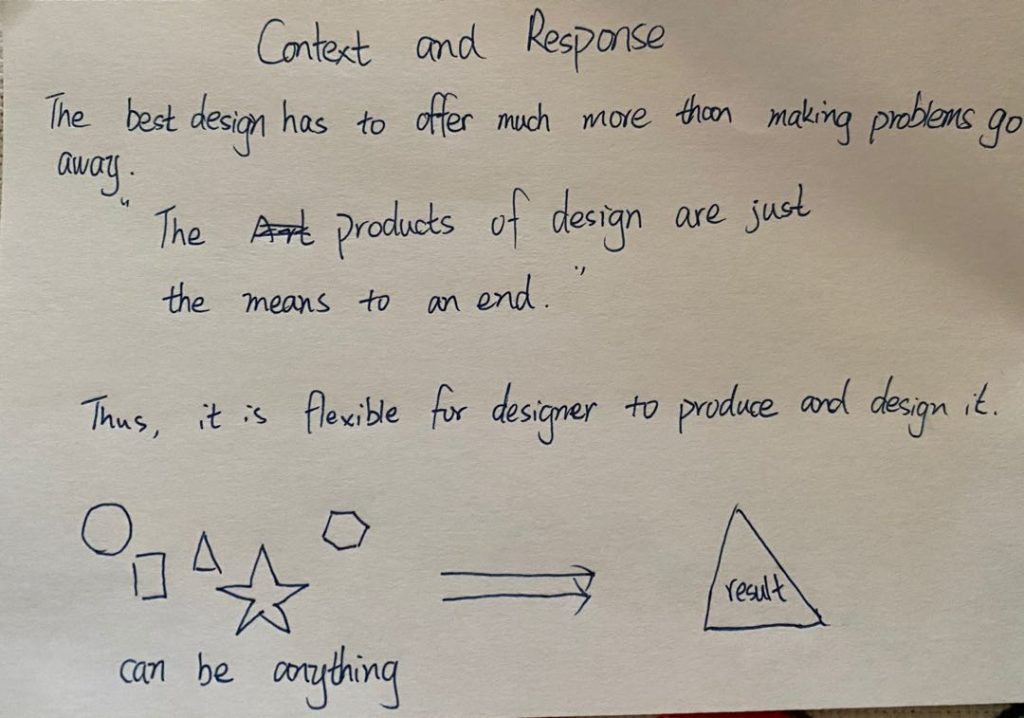 Context and Response
The best design has to offer much more than making problems go
away.
"The Art products of design are just
the means to an end."
Thus, it is flexible for designer to produce and design it.
result
can be anything